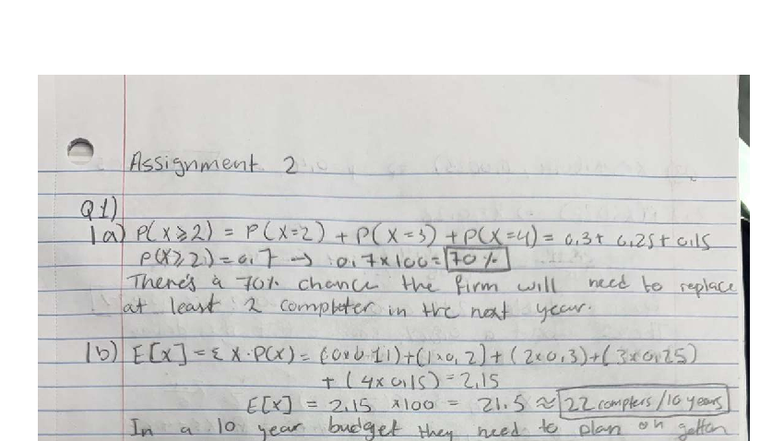 Assignment 2
Q1)
1a) P(X≥2) = P(X=2) + P(X=3) + P(X=4) = 0.3+ 0.25+ 0.15
P(X≥2) = 0.7 → 0.7x100= 70%
There's a 70% chance the firm will need to replace
at least 2 completer in the next year.
1b) E[x] = Σ X·P(x) = (0x0.1)+(1x0.2)+(2x0.3)+(3x0.25)
+ (4x0.15) = 2.15
E[x] = 2.15 x100 = 21.5 ≈ 22 compters/10 years
In a 10 year budget they need to plan on getton